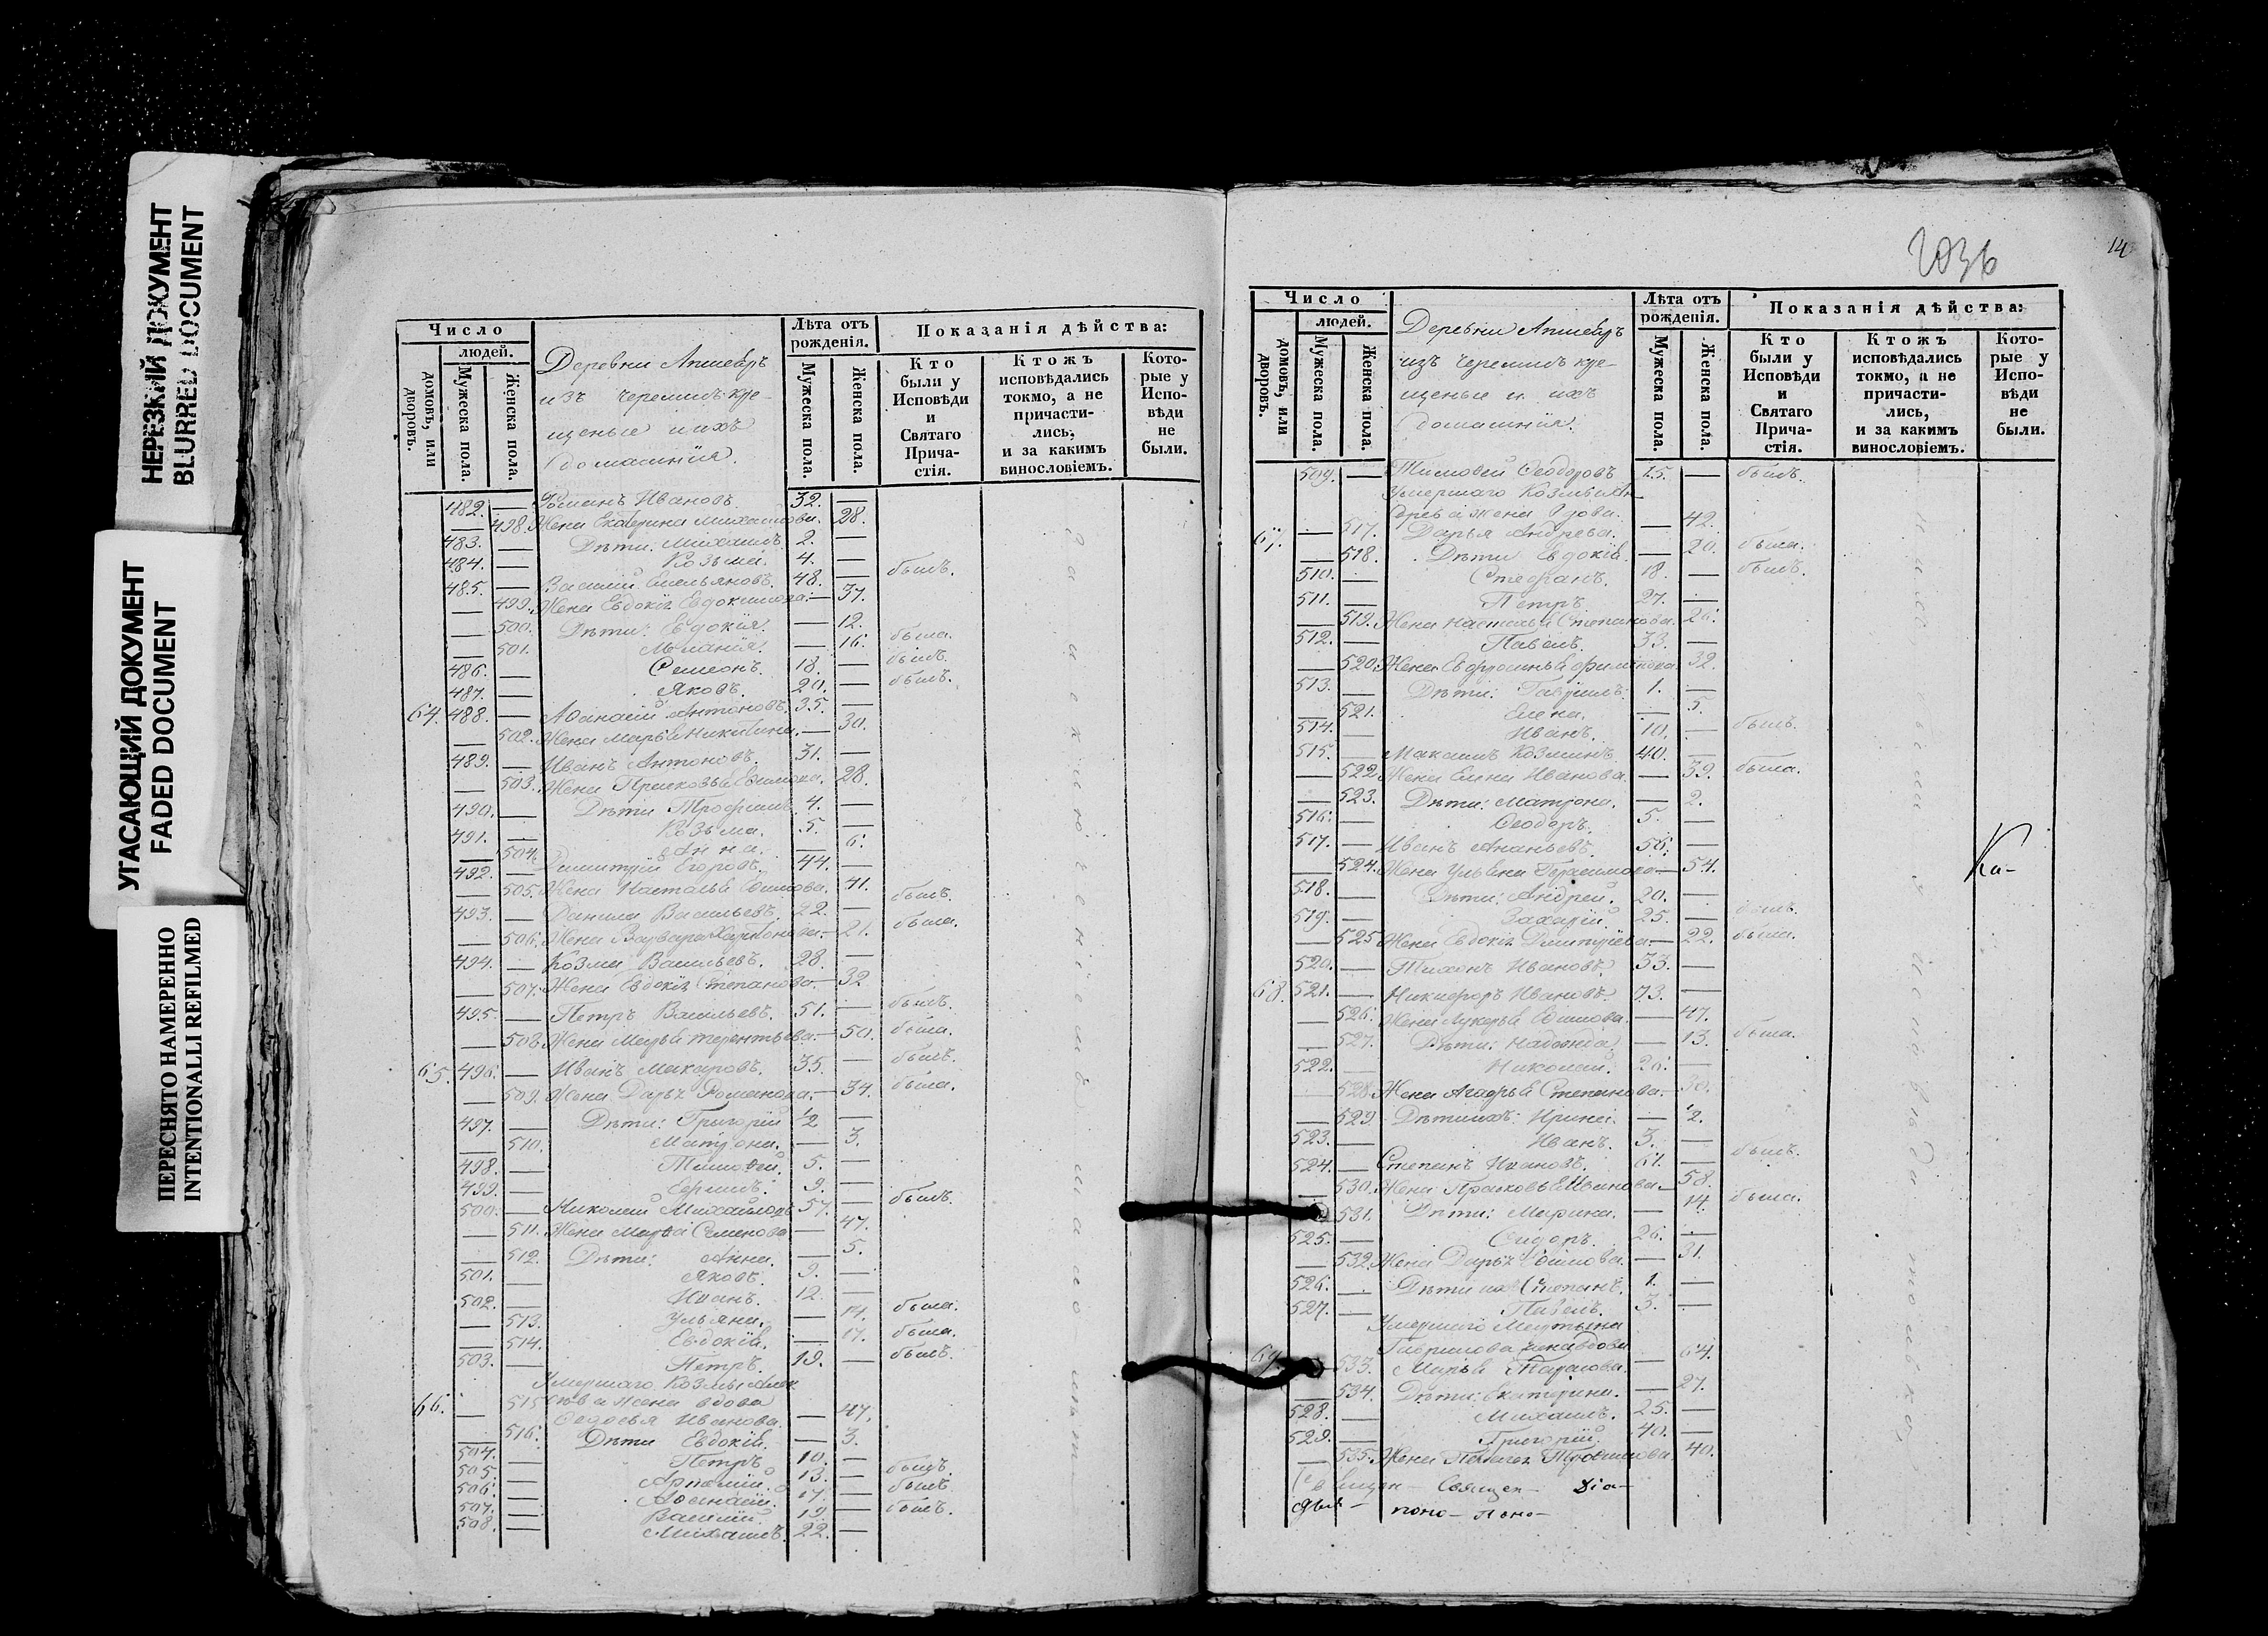 НЕРЕЗКИЙ ДОКУМЕНТ
BLURRED DOCUMENT
УГАСАЮЩИЙ ДОКУМЕНТ
FADED DOCUMENT
ПЕРЕСНЯТО НАМЕРЕННО
INTENTIONALLI REFILMED
Число
людей.
домовъ, или дворовъ.
Мужеска пола.
Женска пола.
Деревни
изъ черемисъ кре-
щеные и ихъ
домашнія.
Лѣта отъ рожденія.
Мужеска пола.
Женска пола.
Показанія дѣйства:
Кто были у Исповѣди и Святаго Прича-стія.
Ктожъ исповѣдались токмо, а не причасти-лись, и за какимъ винословіемъ.
Кото-рые у Испо-вѣди не были.
482. — Романъ Ивановъ. 32. —
— 498. Жена Екатерина Михайлова. 28.
483. — Дѣти: Михаилъ. 2. —
484. — Козьма. 4. —
485. — Василій Емельяновъ. 48. — былъ.
— 499. Жена Евдокія Евдокимова. — 37.
— 500. Дѣти: Евдокія. — 12.
— 501. — 16. была.
486. — Симеонъ. 18. — былъ.
487. — Яковъ. 20. — былъ.
64. 488. — Аѳанасій Антоновъ. 35. —
— 502. Жена Марья Никитина. — 30.
489. — Иванъ Антоновъ. 31. —
— 503. Жена Прасковья 28.
490. — Дѣти Трофимъ. 4. —
491. — Козьма. 5. —
— 504. Анна. — 6.
492. — Димитрій Егоровъ. 44. —
— 505. Жена Наталья 41.
493. — Данила Васильевъ. 22. — былъ.
— 506. Жена Варвара Харитонова. — 21. была.
494. — Козма Васильевъ. 28. —
— 507. Жена Евдокія Степанова. — 32.
495. — Петръ Васильевъ. 51. — былъ.
— 508. Жена Марья Терентьева. — 50. была.
65. 496. — Иванъ Макаровъ. 35. — былъ.
— 509. Жена Дарья Романова. — 34. была.
497. — Дѣти: Григорій 2 —
— 510. Матрона. — 3.
498. — Тимоѳей. 5. —
499. — 9. —
500. — Николай Михайловъ 57. — былъ.
— 511. Жена Марѳа Семенова — 47.
— 512. Дѣти: Анна. — 5.
501. — Яковъ. 9. —
502. — Иванъ. 12. —
— 513. Ульяна. — 14. была.
— 514. Евдокія. — 17. была.
503. — Петръ. 19. — былъ.
Умершаго Козмы
66. — 515 жена вдова
Ѳедосья Иванова. — 47.
— 516. Дѣти Евдокія. — 3.
504. — Петръ 10. —
505. — 13. — былъ.
506. — Аѳанасій. 17. — былъ.
507. — Василій. 19. — былъ.
508. — Михаилъ. 22. —
14
Число
людей.
домовъ, или дворовъ.
Мужеска пола.
Женска пола.
Деревни
изъ черемисъ кре-
щеные и ихъ
домашнія.
Лѣта отъ рожденія.
Мужеска пола.
Женска пола.
Показанія дѣйства:
Кто были у Исповѣди и Святаго Прича-стія.
Ктожъ исповѣдались токмо, а не причасти-лись, и за какимъ винословіемъ.
Кото-рые у Испо-вѣди не были.
509. — Тимоѳей Ѳеодоровъ 15. — былъ.
Умершаго Козмы Ан-
дреева жена вдова.
67. — 517. Дарья Андреева. — 42.
— 518. Дѣти Евдокія. — 20. была.
510. — Стефанъ. 18. — былъ.
511. — Петръ. 27. —
— 519. Жена Настасья Степанова. 26.
512. — Павелъ. 33. —
— 520. Жена 32.
513. — Дѣти: Гаврилъ. 1. —
— 521. Елена. — 5.
514. — Иванъ. 10. — былъ.
515. — Максимъ Козминъ. 40. —
— 522. Жена Елена Иванова. — 39. была.
— 523. Дѣти: Матрона. — 2.
516. — Ѳеодоръ. 5. —
517. — Иванъ Ананьевъ. 56. —
— 524. Жена Ульяна Герасимова — 54.
518. — Дѣти: Андрей. 20. —
519. — Захарій. 25. — былъ.
— 525. Жена Евдокія Дмитріева — 22. была.
520. — Тихонъ Ивановъ. 33. —
68. 521. — Никифоръ Ивановъ. —
— 526. Жена Лукерья — 47.
— 527. Дѣти: Надежда — 13. была.
522. — Николай. 26. —
528. Жена Агафья Степанова. —
— 529. Дѣти ихъ: — 2.
523. — Иванъ. 3. —
524. — Степанъ Ивановъ. 61. — былъ.
— 530. Жена Прасковья Иванова — 58.
531. Дѣти: Марина. — 14. была.
525. — Сидоръ. 26. —
— 532. Жена Дарья — 31.
526. — Дѣти ихъ Степанъ. 1. —
527. — Павелъ. 3. —
Умершаго Мартына
Гаврилова жена вдова
533. Марья Тарасова. — 64.
— 534. Дѣти: Екатерина. — 27.
528. — Михаилъ. 25. —
529. — Григорій. 40. —
— 535. Жена Пелагея 40.
Ка-
Священ- Діа-
поно- поно-